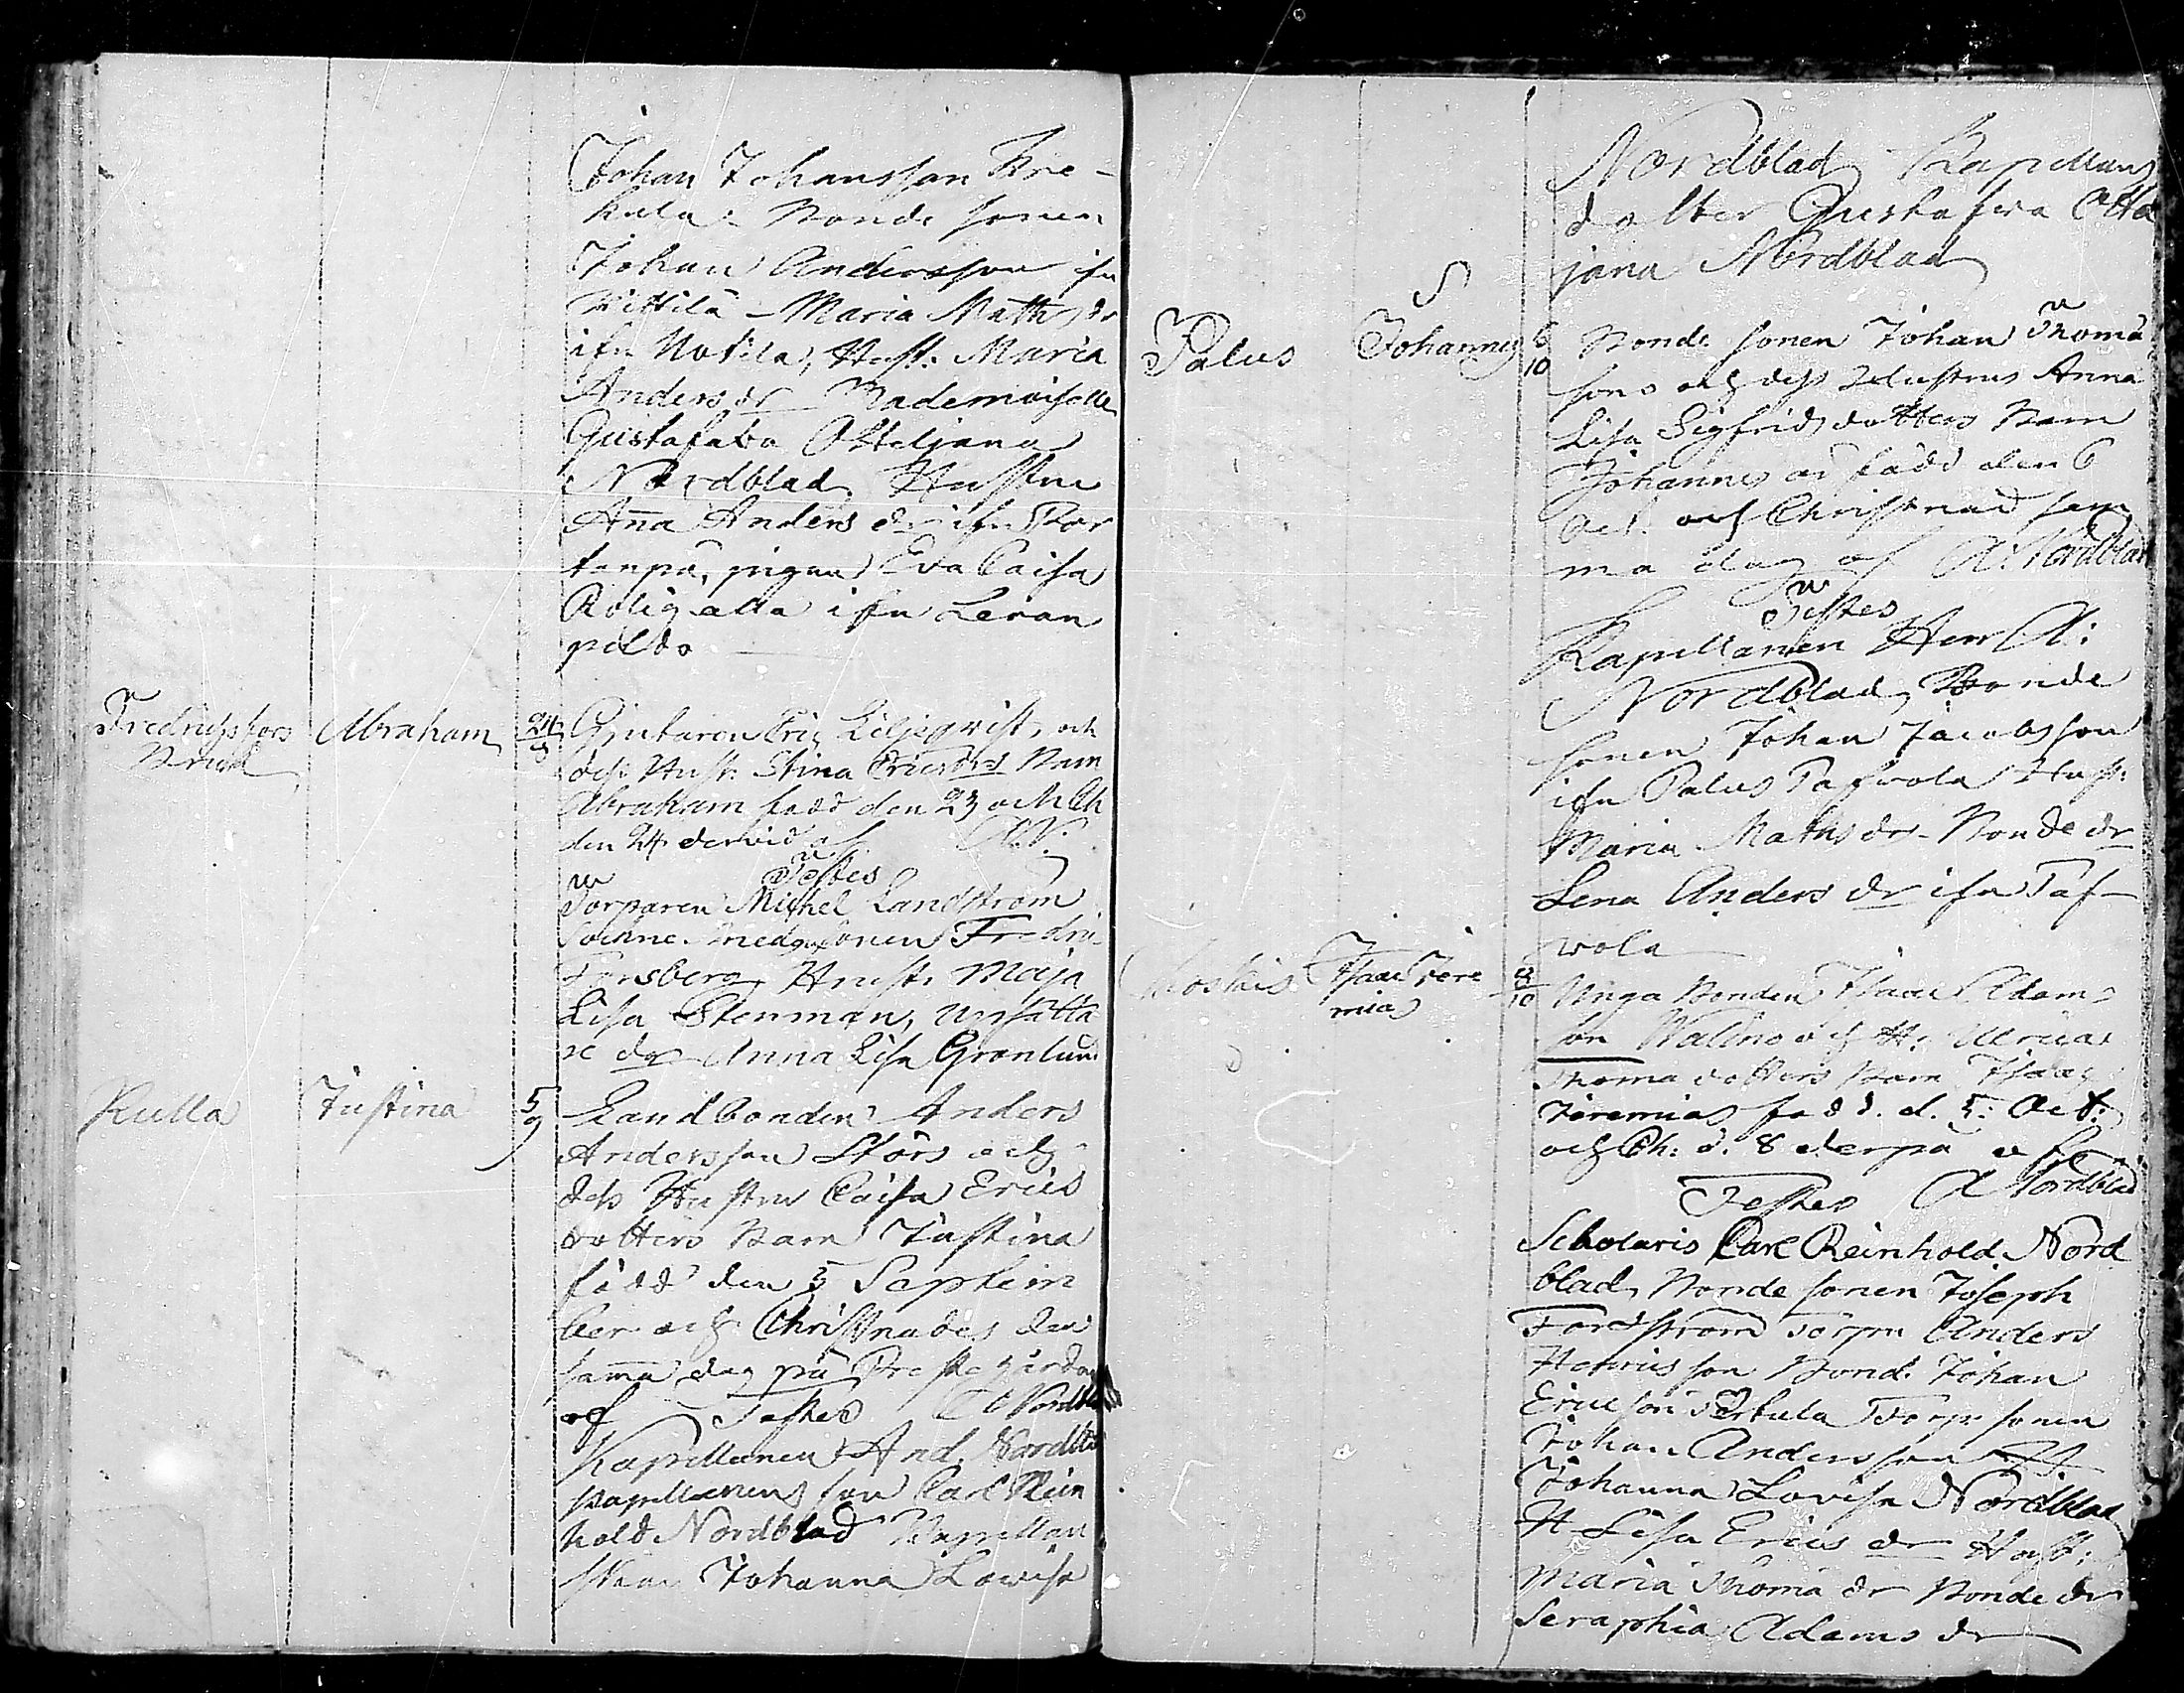 Johan Johansson Kre-
kula. Bonde sonen
Johan Andersson ifn
Kittilä - Maria Math dr
ifn Hust: Maria
Anders dr Mademoiselle
Gustafava Otteljana
Nordblad Hustru
Anna Anders dr ifn Tor
tanpä, pigan Eva Caisa
alla ifn Leran
peldo
Fredricsfors
Bruk
Abraham
24
9
Gjutaren Eric Liljeqvist, och
dess Hust. Stina Ericsdrs Barn
Abraham född den 23 och Ch
den 24 dervid af A:N:
Testes
Torparen Michel Landström
Fredri
Forsberg, Hust. Maja
Lisa Stenman,
dr Anna Lisa Grönlund
Kulla
Justina
5
9
Landbonden Anders
Andersson Störs och
dess Hustru Caisa Erics
dotters Barn Justina
född den 5 Septem
ber och Christnades den
samma dag på Prestegården
af Testes A Nordbla
Kapellanen And. Nordbla
Kapellanens son Carl Rein
hold Nordblad Kapellan
skan Johanna Lovisa
Nordblad Kapellans
dotter Gustafva Otte
jana Nordblad
Palus
Johannes
6
10
Bonde sonen Johan Thomä
sons och dess Hustrus Anna
Lisa Sigfrids dotters Barn
Johannes är född den 6
Oct. och Christnad sam
ma dag af A: Nordblad
Testes
Kapellanen Herr A:
Nordblad, Bonde
sonen Johan Jacobsson
ifn Palus Tafwola Hust:
Maria Maths dr - Bonde dr
Lena Anders dr ifn Taf-
wola
Koskis
Isaac Jere
mias
8
10
Unga Bonden Isaac Adams
son Walins och H. Ulricas
Thomä dotters Barn Isaac
Jeremias född. d. 5: Oct:
och Ch: d. 8 derpå af
Testes A Nordblad
Scholaris Carl Reinhold Nord
blad, Bonde sonen Joseph
Fordström Torpn Anders
Henricsson Bond. Johan
Ericsson Torp: sonen
Johan Andersson
Johanna Lovisa Nordblad
H Lisa Erics dr Hust:
Maria Thomä dr Bonde dr
Seraphia Adams dr